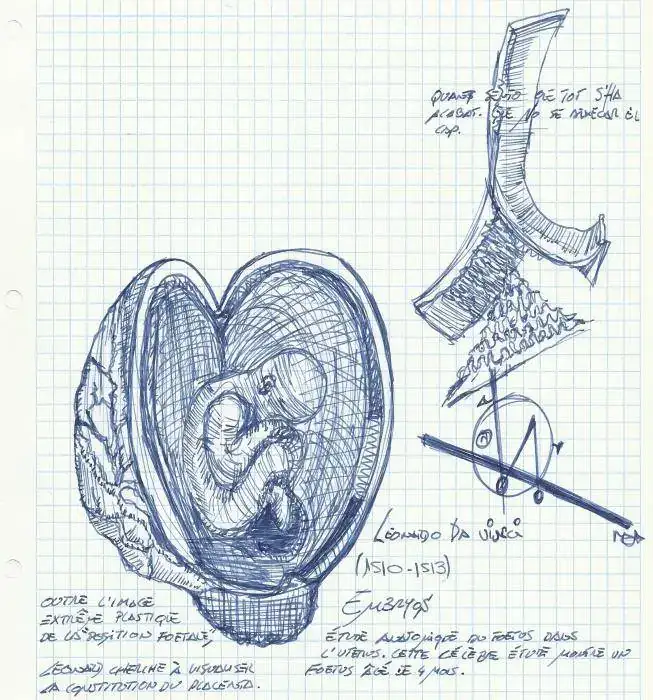 QUAN SENTO QUE TOT S'HA
ACABAT. QUE NO SE
CAP.
LEONARDO DA VINCI
(1510-1513)
EMBRYOS
OUTRE L'IMAGE
EXTRÊME PLASTIQUE
DE LA "POSITION FOETALE",
LEONARD CHERCHE À VISUALISER
LA CONSTITUTION DU PLACENTA.
ÉTUDE ANATOMIQUE DU FOETUS DANS
L'UTERUS. CETTE CÉLÈBRE ÉTUDE MONTRE UN
FOETUS ÂGÉ DE 4 MOIS.